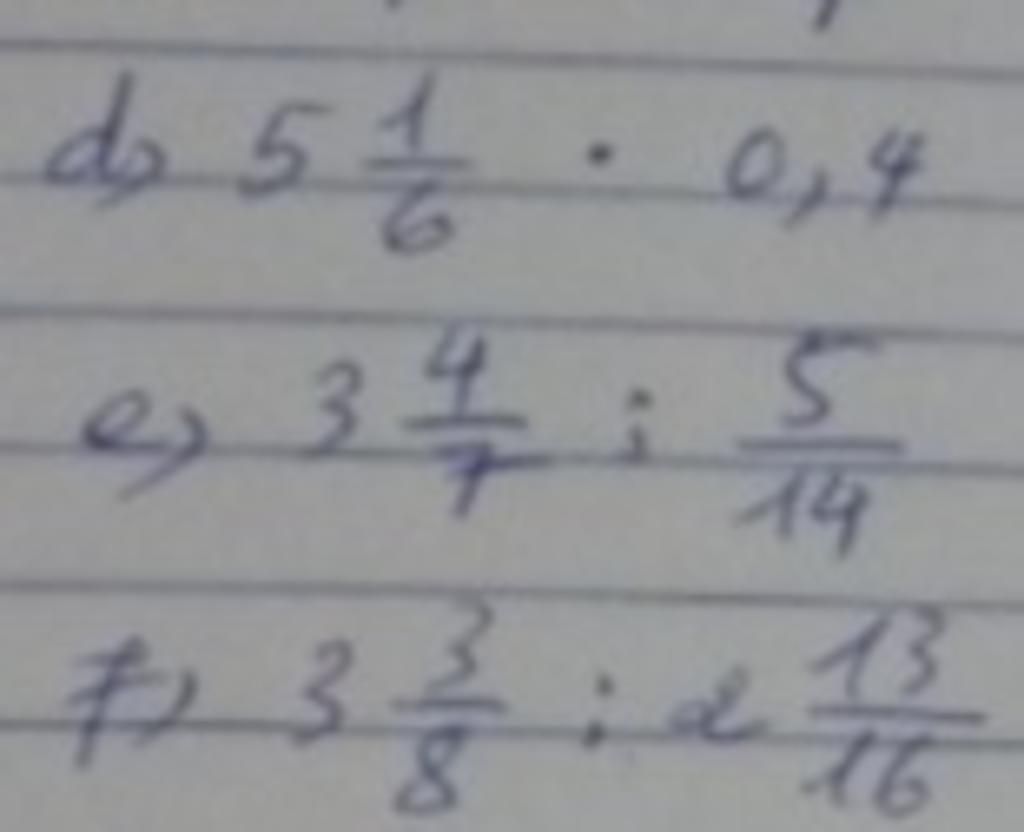 d) 5 1/6 · 0,4
e) 3 4/7 : 5/14
f) 3 3/8 : 2 13/16